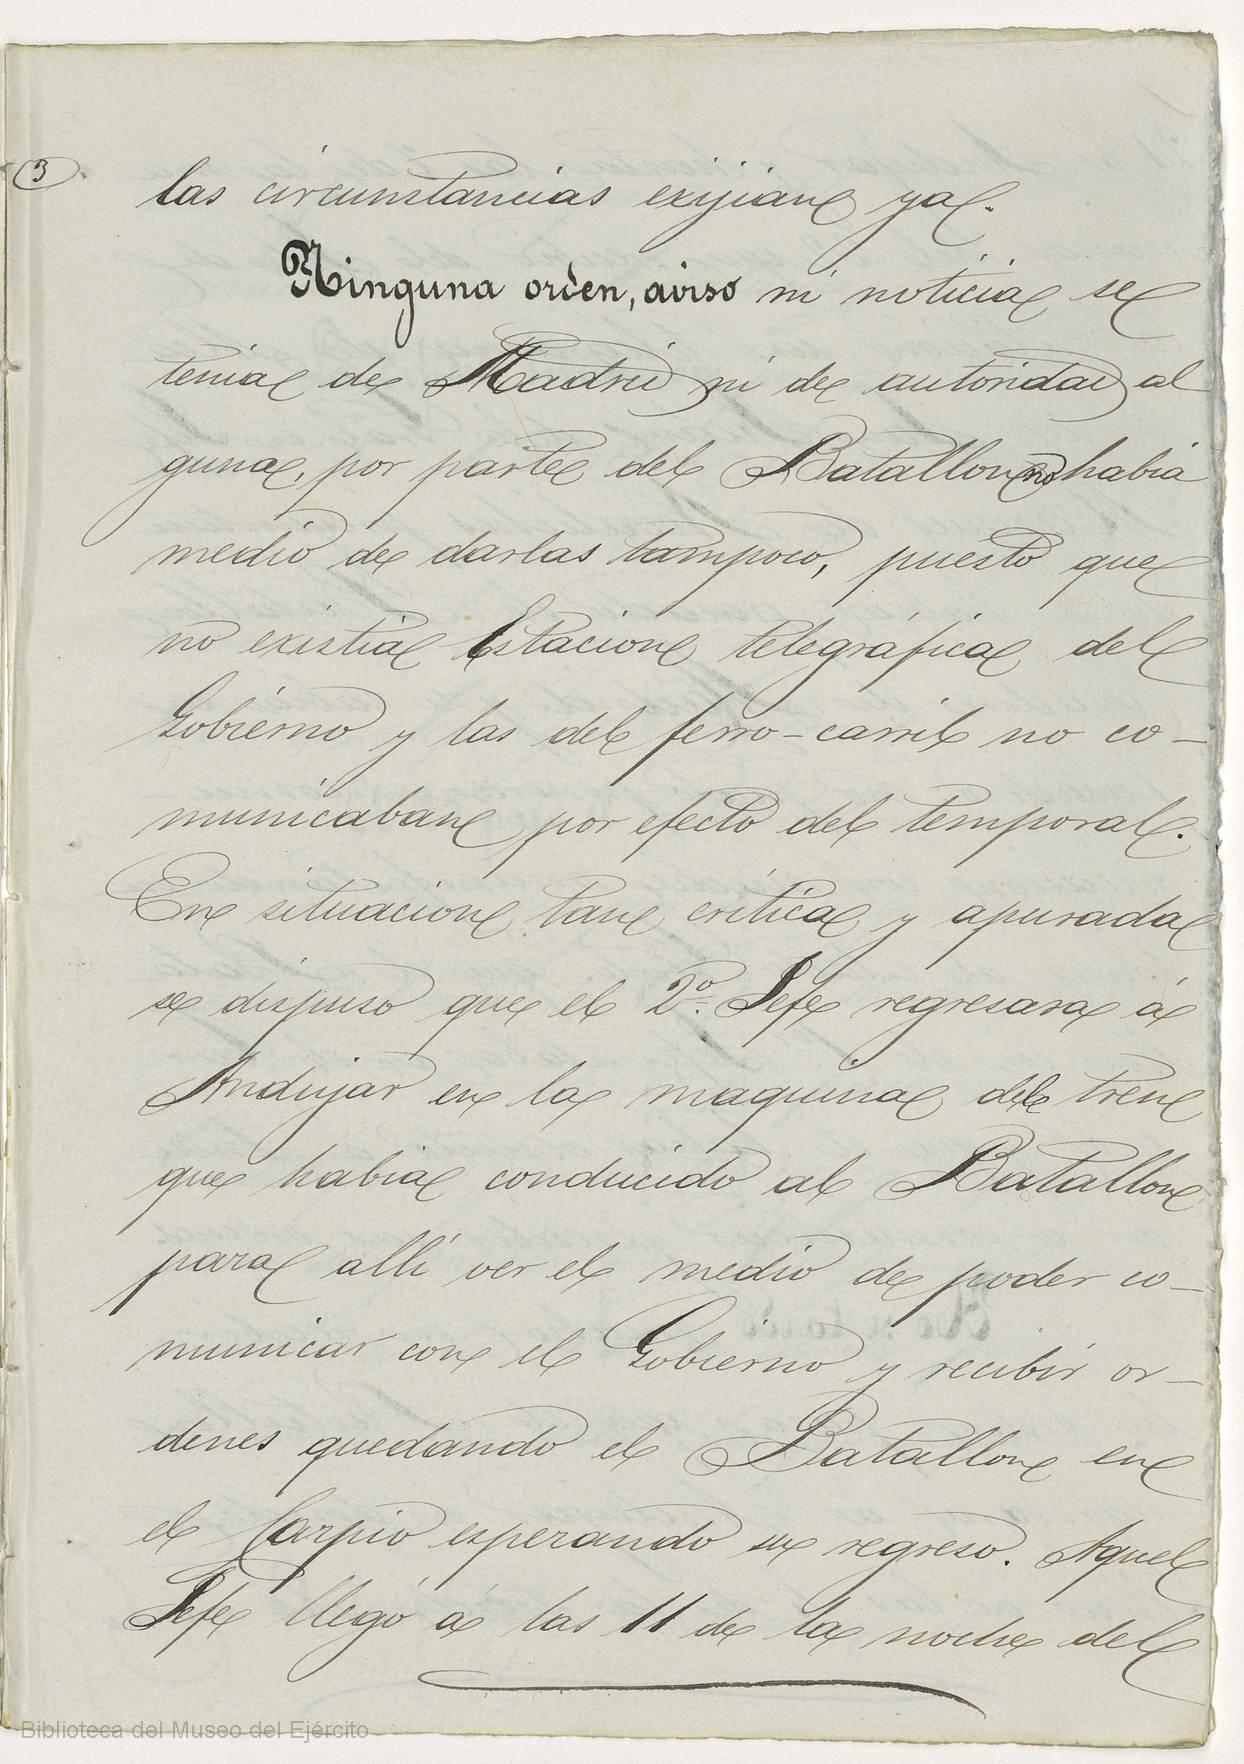 3
las circunstancias exijian ya.
Ninguna orden, aviso ni noticia se
tenia de Madrid ni de autoridad al
guna, por parte del Batallon no habia
medio de darlas tampoco, puesto que
no existia Estacion telegráfica del
Gobierno y las del ferro-carril no co-
municaban por efecto del temporal.
En situacion tan crítica y apurada
se dispuso que el 2º. Jefe regresara á
Andujar en la maquina del tren
que habia conducido al Batallon
para allí ver el medio de poder co-
municar con el Gobierno y recibir or-
denes quedando el Batallon en
el Carpio esperando su regreso. Aquel
Jefe llegó á las 11 de la noche del
Biblioteca del Museo del Ejército